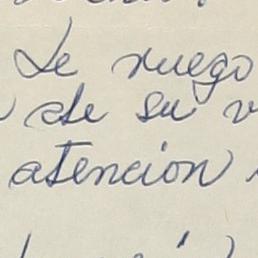 Le ruego
de su v
atencion